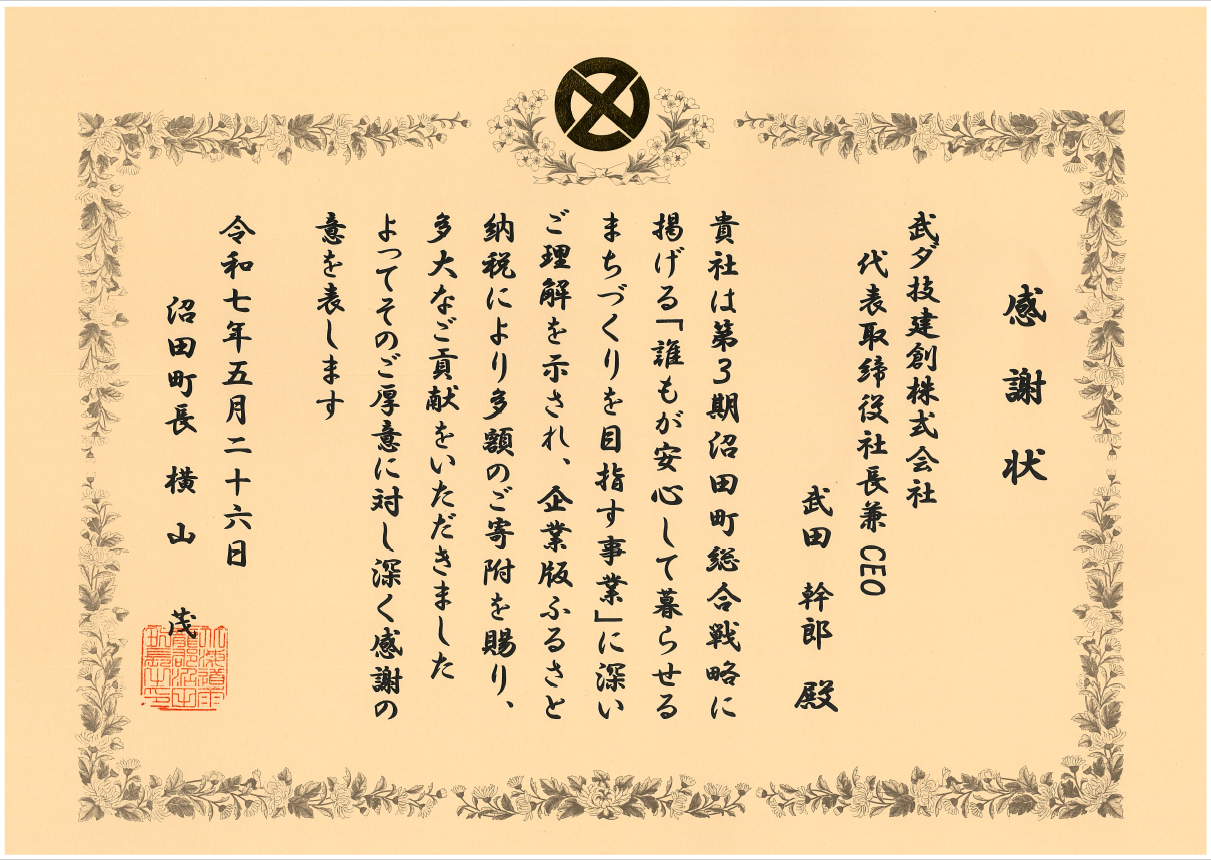 感謝状
武ダ技建創株式会社
代表取締役社長兼CEO
武田 幹郎 殿
貴社は第3期沼田町総合戦略に
掲げる「誰もが安心して暮らせる
まちづくりを目指す事業」に深い
ご理解を示され、企業版ふるさと
納税により多額のご寄附を賜り、
多大なご貢献をいただきました
よってそのご厚意に対し深く感謝の
意を表します
令和七年五月二十六日
沼田町長 横山 茂